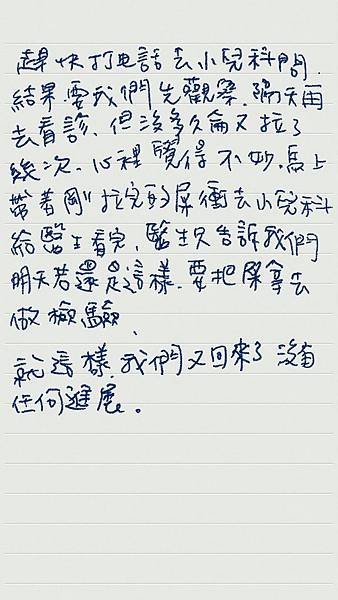 趕快打电話去小兒科問.
結果.要我們先觀察.隔天再
去看診.但沒多久侖又拉了
幾次.心裡覺得不妙.馬上
帶著剛拉完的屎衝去小兒科
給醫生看完,醫生只告訴我們
明天若還是這樣.要把屎拿去
做檢驗.
就這樣.我們又回來了 沒有
任何進展。